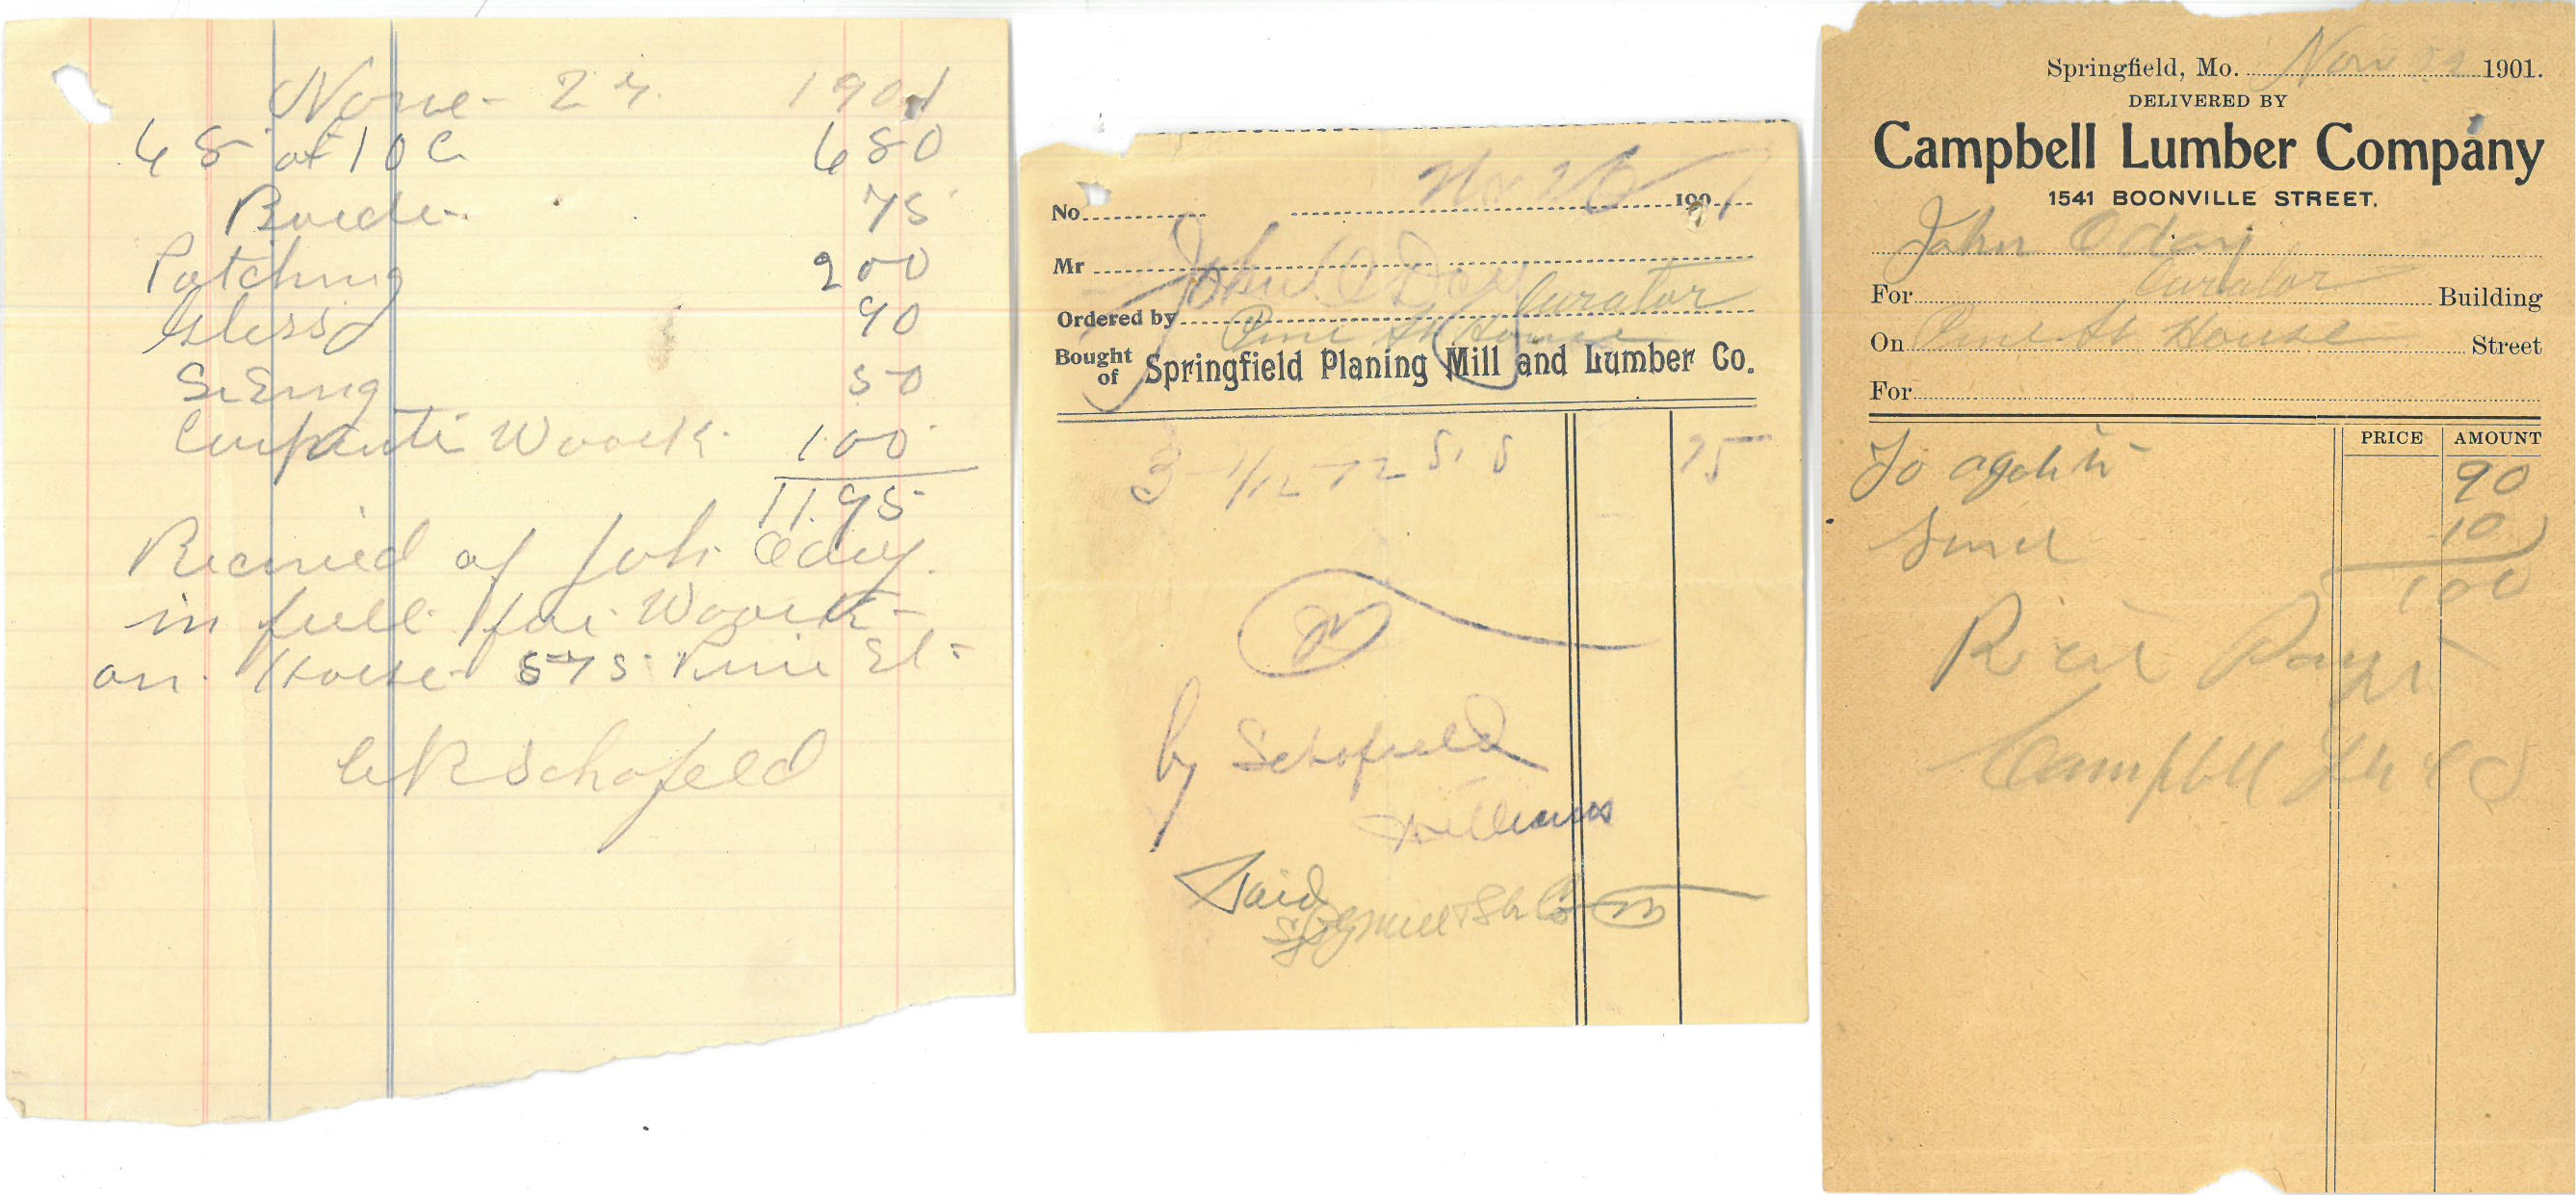 Nove- 27. 1901
68 at 10 C 680
Borde-. 75
Patching 200
Glass 90
Sizing 50
Carpenti Woork. 100
11.95
Recived of Joh Oday.
in full for Woork-
on. House- 575 Pine St-
CR Schofeld
No. Nov 20 1901
Mr John O Day
Curator
Ordered by Pine St House
Bought of Springfield Planing Mill and Lumber Co.
3-1/12-12 S1S 75
by Schofield
Williams
Paid
Springfield, Mo. Nov 22 1901.
DELIVERED BY
Campbell Lumber Company
1541 BOONVILLE STREET.
John Oday
For Curator Building
On Pine St House Street
For
PRICE AMOUNT
To 90
10
100
Rec Payt
Campbell